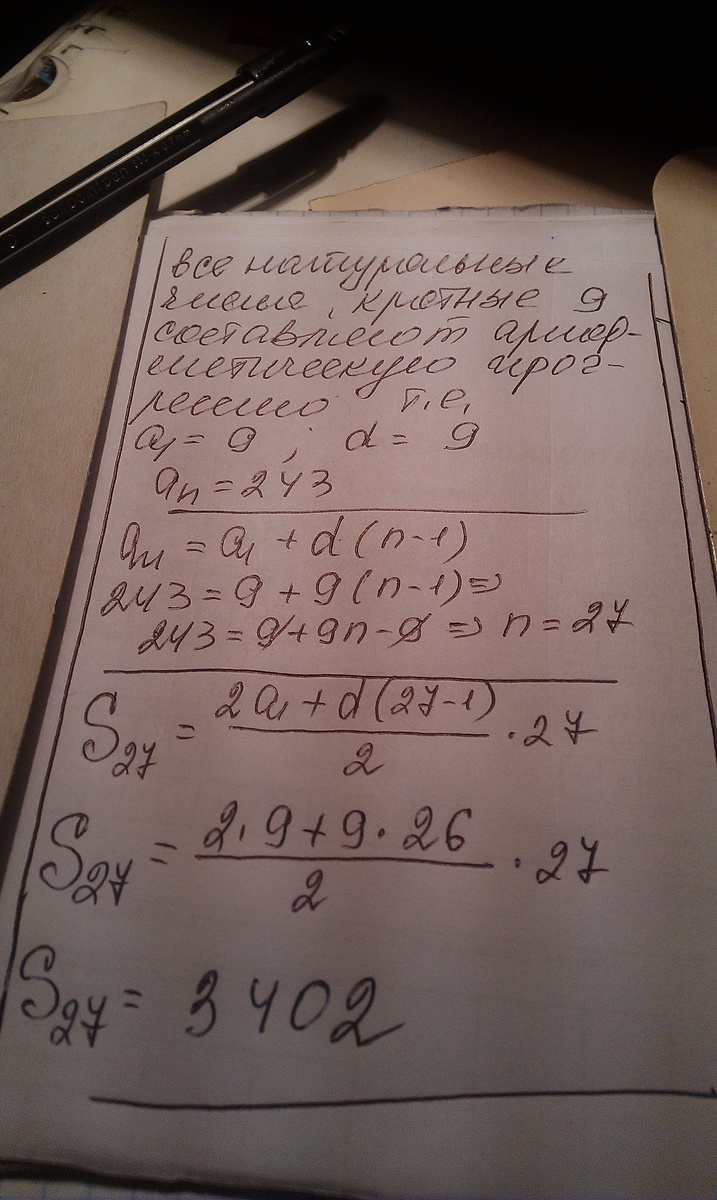 все натуральные
числа, кратные 9
составляют ариф-
метическую прог-
рессию т.е.
a₁ = 9 ; d = 9
aₙ = 243
aₙ = a₁ + d (n-1)
243 = 9 + 9 (n-1) =>
243 = 9 + 9n - 9 => n = 27
S₂₇ = (2a₁ + d (27-1))/2 · 27
S₂₇ = (2·9 + 9·26)/2 · 27
S₂₇ = 3402